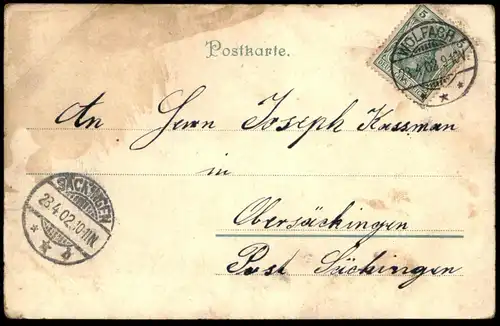 Postkarte.
5
WOLFACH
02.9-10V.
An Herrn Joseph Kassman
in
Obersäckingen
Post Säckingen
SÄCKINGEN
28.4.02.10-11N.